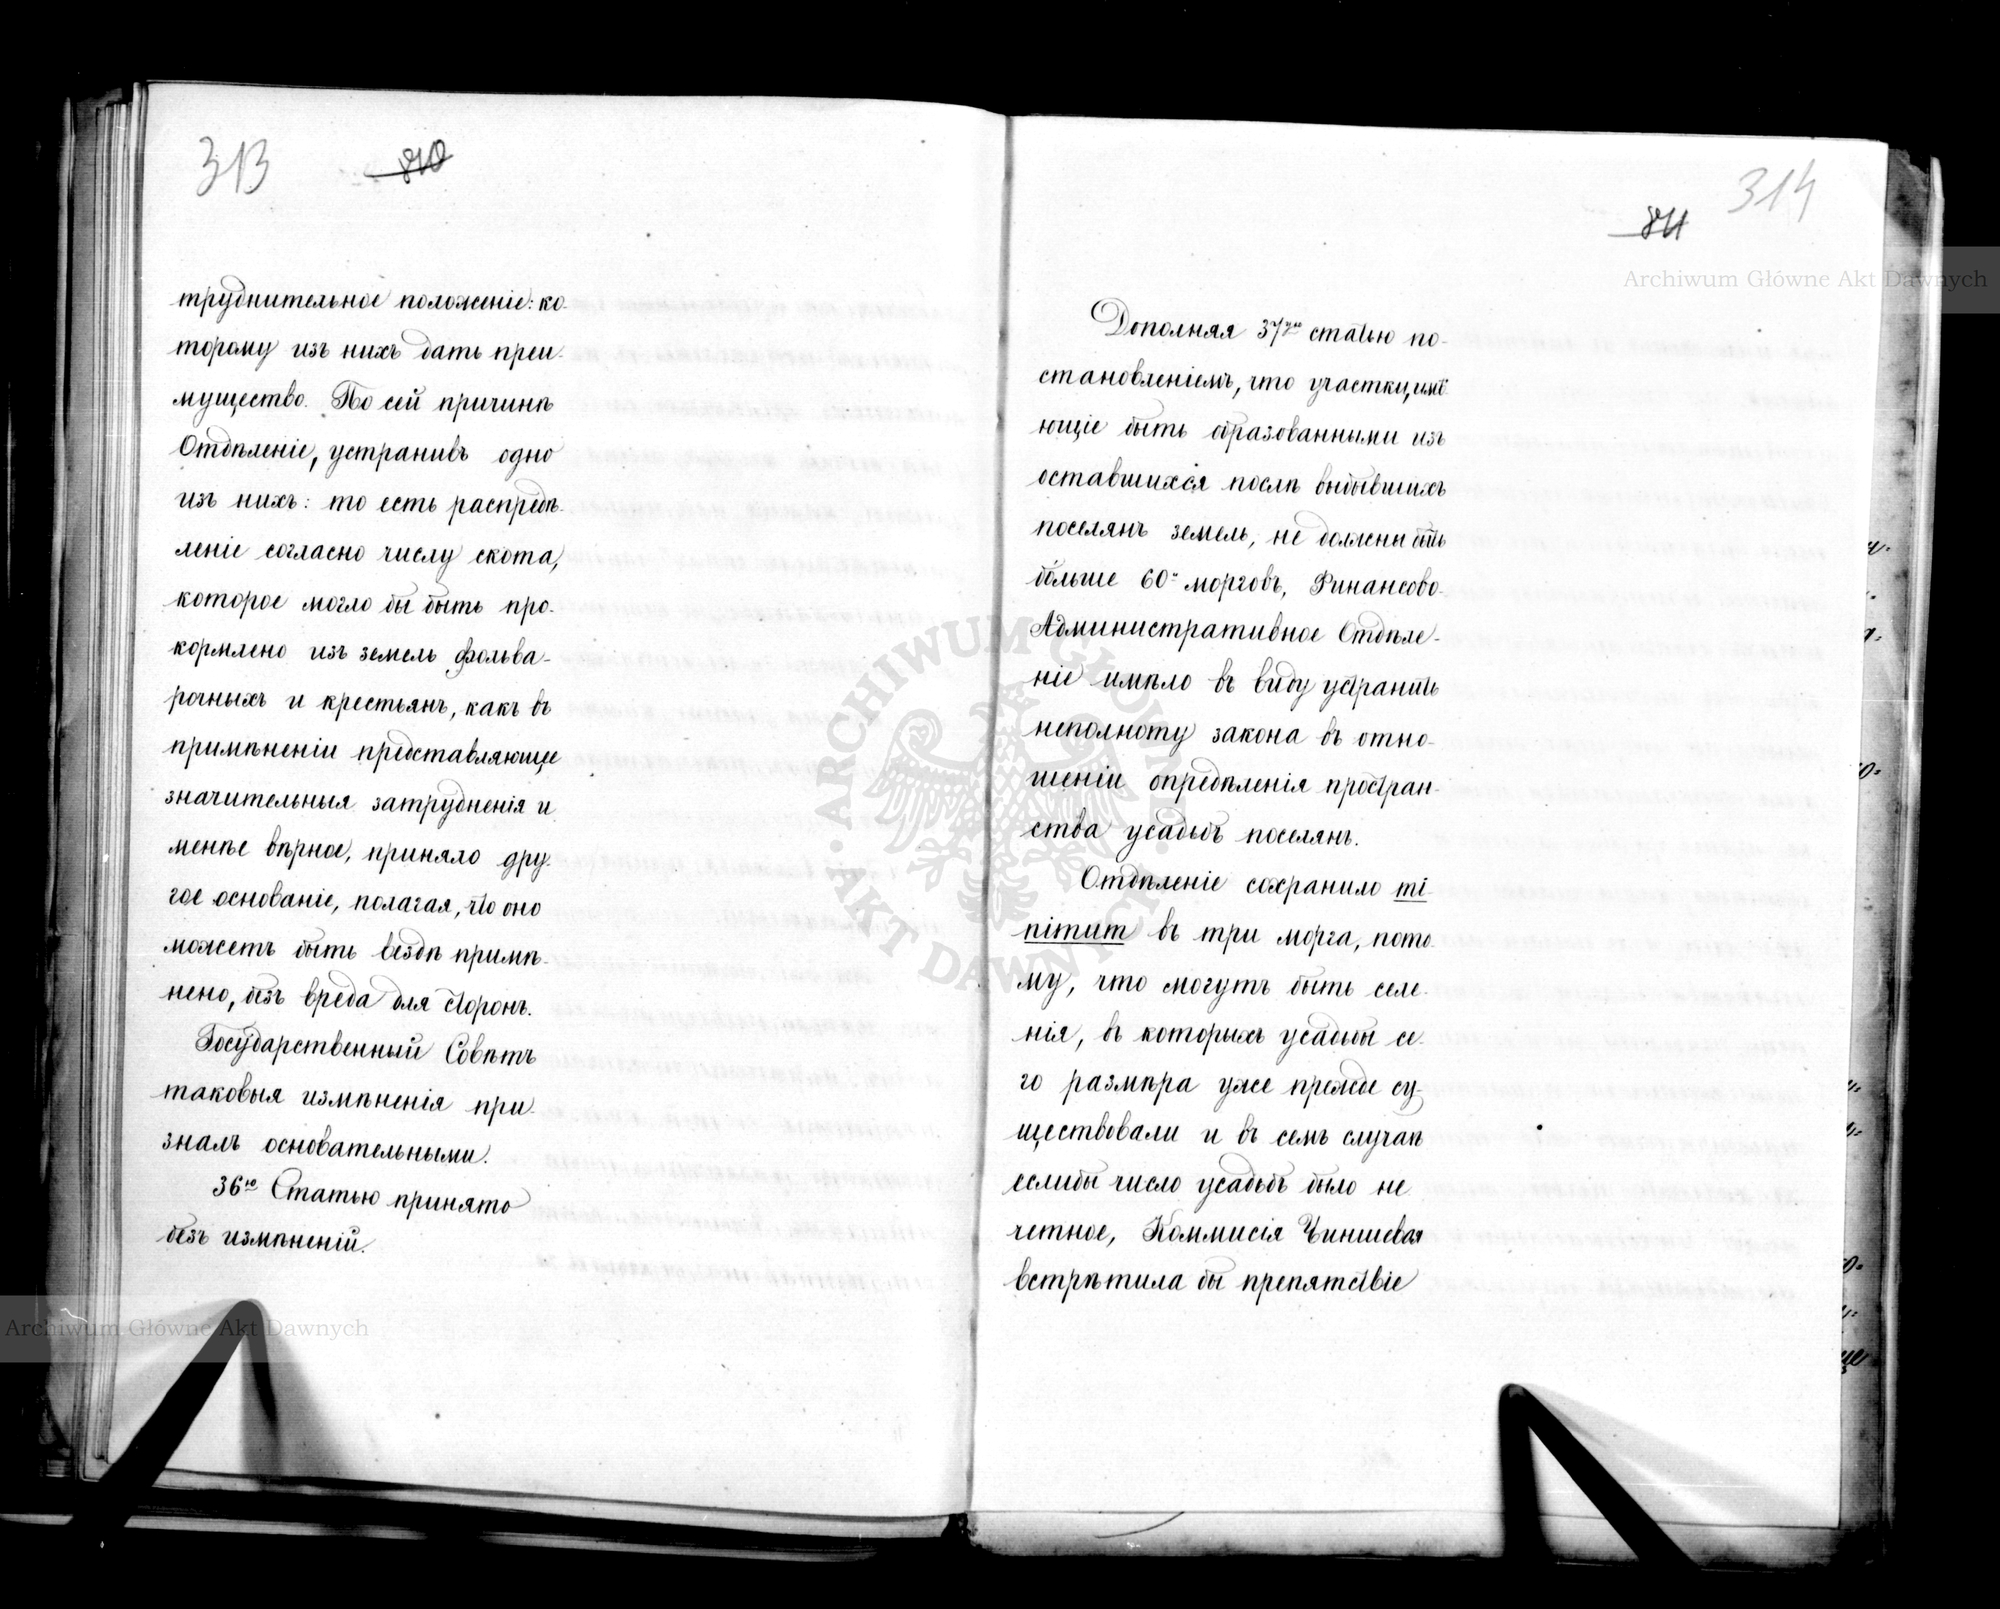 313
810
труднительное положеніе: ко-
торому изъ нихъ дать преи-
мущество. По сей причинѣ
Отдѣленіе, устранивъ одно
изъ нихъ: то есть распредѣ-
леніе согласно числу скота,
которое могло бы быть про-
кормлено изъ земель фольва-
рочныхъ и крестьянъ, какъ въ
примѣненіи представляющее
значительныя затрудненія и
менѣе вѣрное, приняло дру-
гое основаніе, полагая, что оно
можетъ быть вездѣ примѣ-
нено, безъ вреда для сторонъ.
Государственный Совѣтъ
таковыя измѣненія при-
зналъ основательными.
36ю Статью принято
безъ измѣненій.
314
811
Дополняя 37ую статью по-
становленіемъ, что участки, имѣ-
ющіе быть образованными изъ
оставшихся послѣ выбывшихъ
поселянъ земель, не должны быть
больше 60и морговъ, Финансово-
Административное Отдѣле-
ніе имѣло въ виду устранить
неполноту закона въ отно-
шеніи опредѣленія простран-
ства усадьбъ поселянъ.
Отдѣленіе сохранило mi-
nimum въ три морга, пото-
му, что могутъ быть селе-
нія, въ которыхъ усадьбы се-
го размѣра уже прежде су-
ществовали и въ семъ случаѣ
еслибы число усадьбъ было не
четное, Коммисія Чиншевая
встрѣтила бы препятствіе
Archiwum Główne Akt Dawnych
Archiwum Główne Akt Dawnych
ARCHIWUM GŁÓWNE AKT DAWNYCH